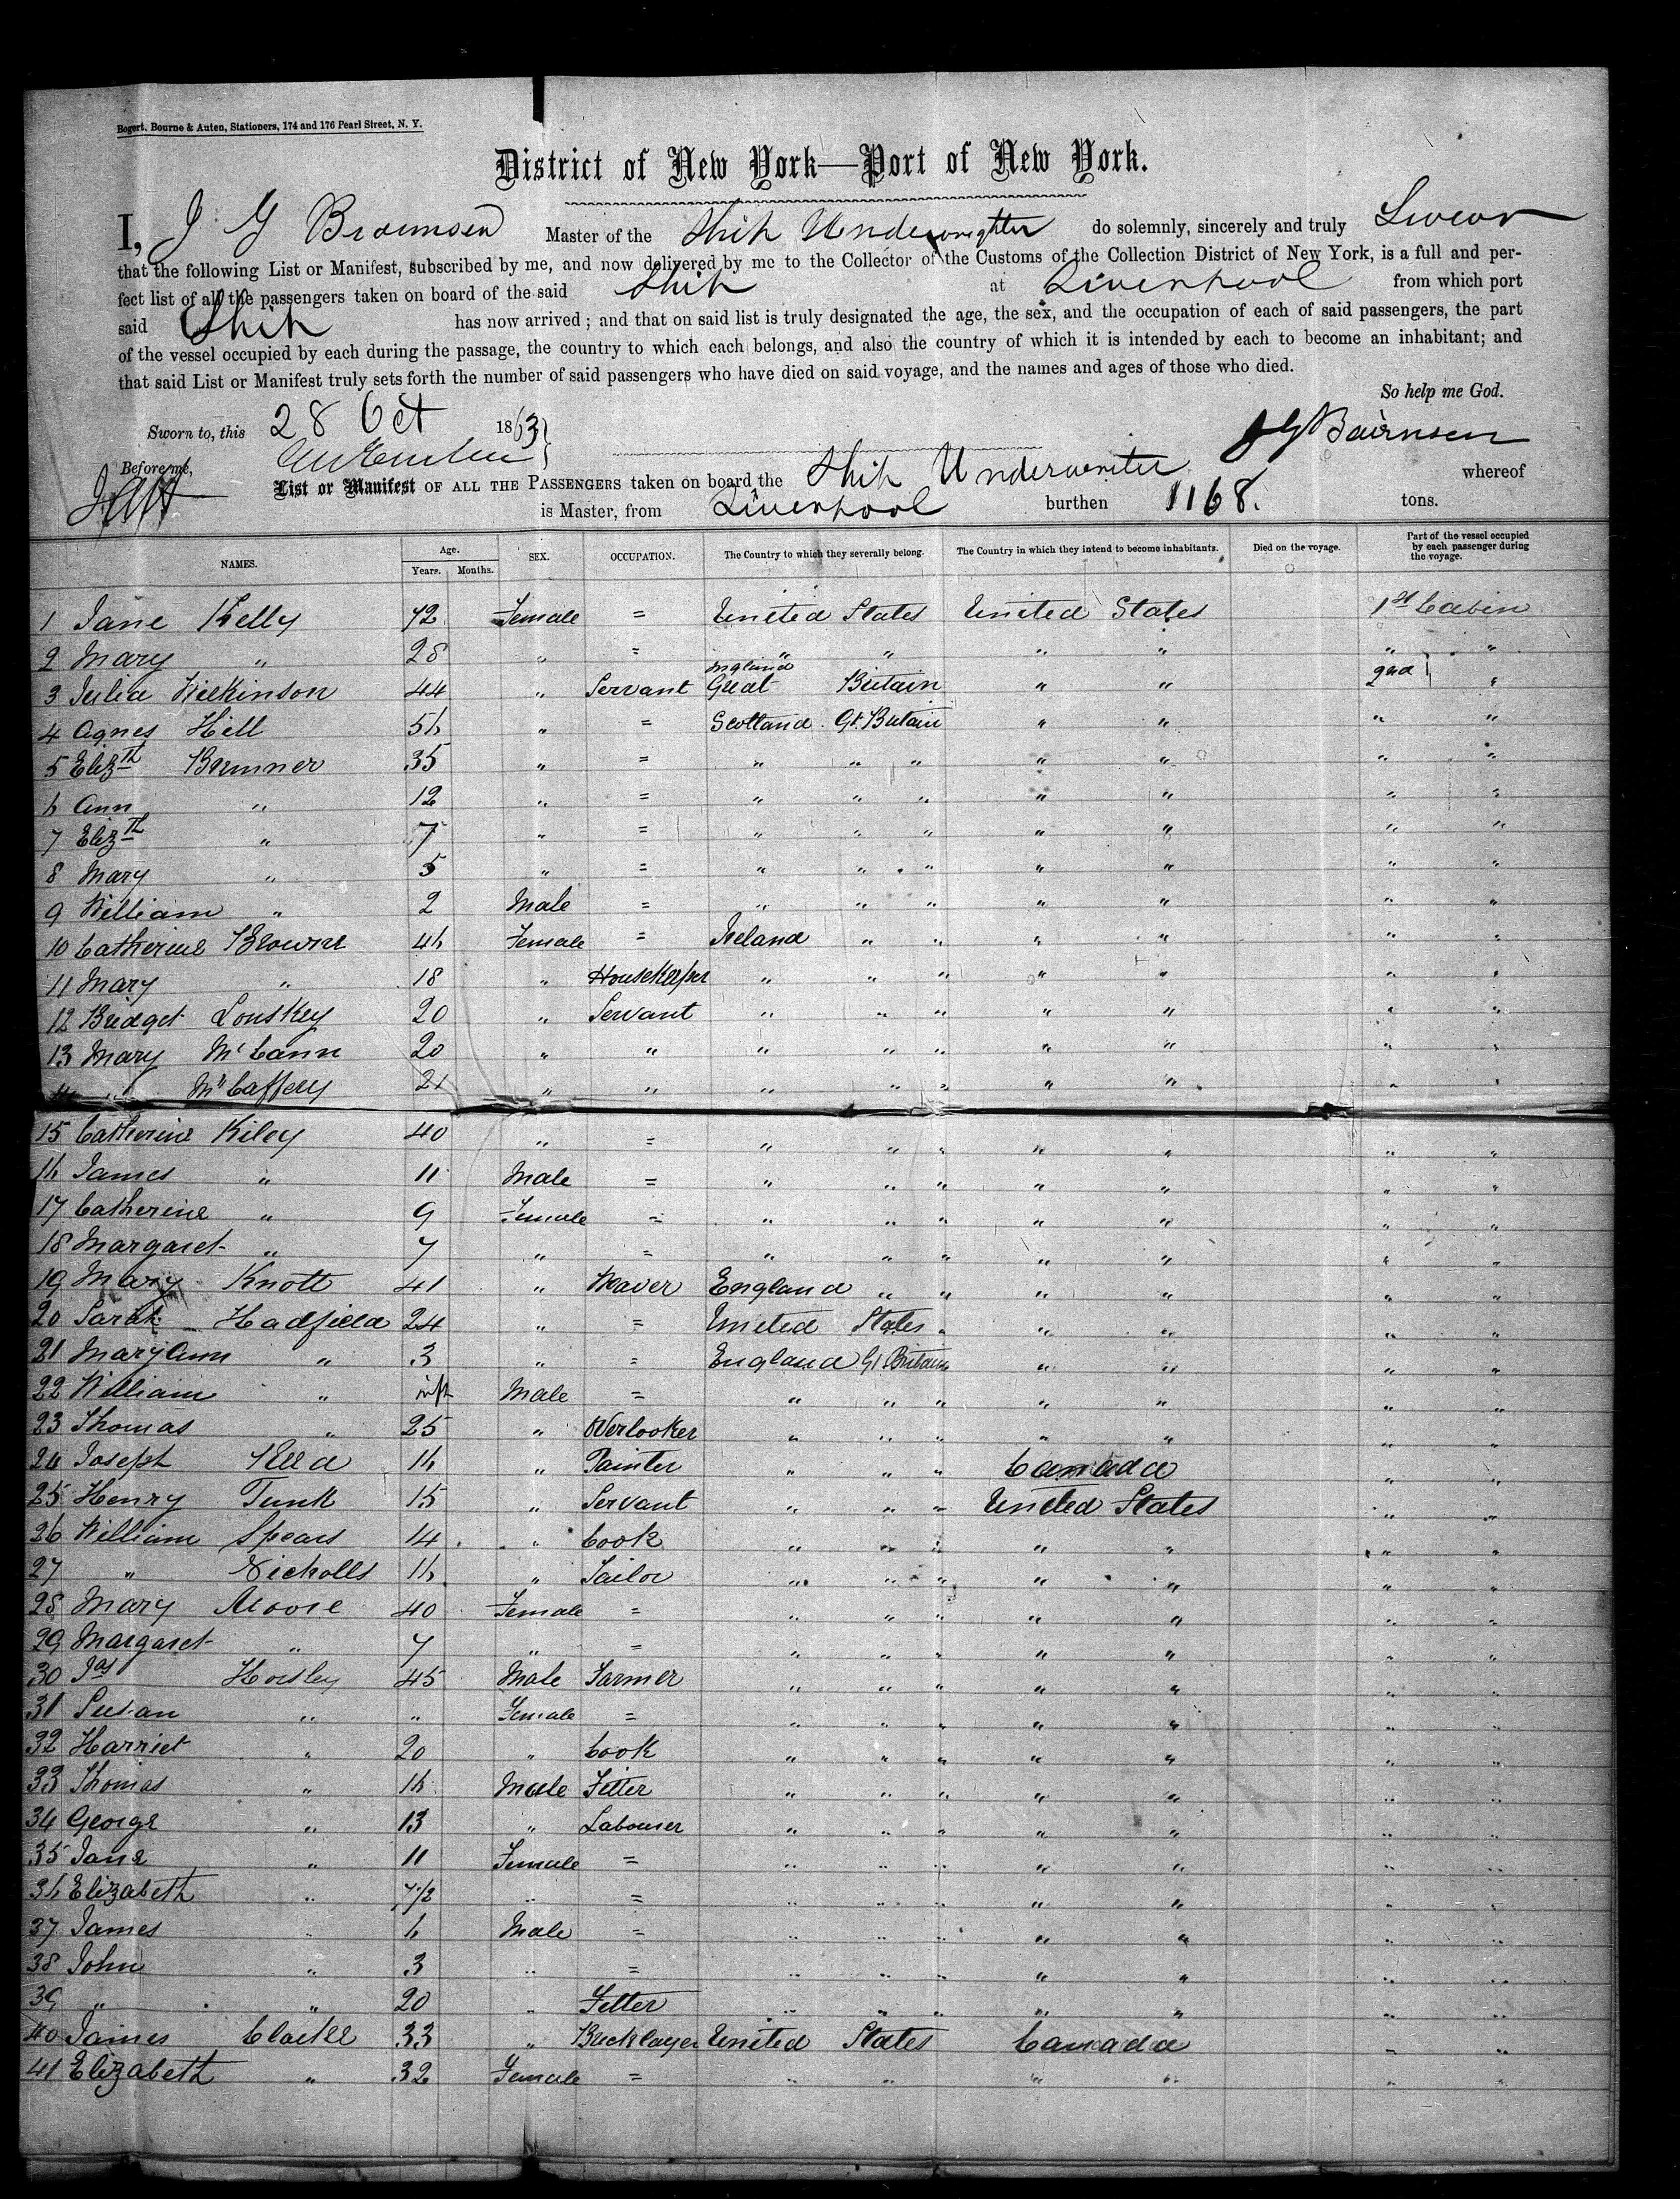 Bogert, Bourne & Auten, Stationers, 174 and 176 Pearl Street, N. Y.
District of New York—Port of New York.
I, J G Master of the Ship Underwriter do solemnly, sincerely and truly Swear
that the following List or Manifest, subscribed by me, and now delivered by me to the Collector of the Customs of the Collection District of New York, is a full and per-
fect list of all the passengers taken on board of the said Ship at Liverpool from which port
said Ship has now arrived ; and that on said list is truly designated the age, the sex, and the occupation of each of said passengers, the part
of the vessel occupied by each during the passage, the country to which each belongs, and also the country of which it is intended by each to become an inhabitant; and
that said List or Manifest truly sets forth the number of said passengers who have died on said voyage, and the names and ages of those who died.
So help me God.
Sworn to, this 28 Oct 1863 } J G Bairnsen
Before me,
List or Manifest OF ALL THE PASSENGERS taken on board the Ship Underwriter whereof
is Master, from Liverpool burthen 1168. tons.
NAMES. Age. Years. Months. SEX. OCCUPATION. The Country to which they severally belong. The Country in which they intend to become inhabitants. Died on the voyage. Part of the vessel occupied by each passenger during the voyage.
1 Jane Kelly 72 Female = United States United States 1st Cabin
2 Mary " 28 " = " " " " " "
3 Julia Wilkinson 44 " Servant England Great Britain " " 2nd "
4 Agnes Hill 56 " = Scotland Gt. Britain " " " "
5 Elizth Bremner 35 " = " " " " " " "
6 Ann " 12 " = " " " " " " "
7 Elizth " 7 " = " " " " " " "
8 Mary " 5 " = " " " " " " "
9 William " 2 Male = " " " " " " "
10 Catherine Browne 46 Female = Ireland " " " " " "
11 Mary " 18 " Housekeeper " " " " " " "
12 Bridget Louskey 20 " Servant " " " " " " "
13 Mary McCann 20 " " " " " " " " "
14 " McCaffery 21 " " " " " " " " "
15 Catherine Kiley 40 " = " " " " " " "
16 James " 11 Male = " " " " " " "
17 Catherine " 9 Female = " " " " " " "
18 Margaret " 7 " = " " " " " " "
19 Mary Knott 41 " Weaver England " " " " " "
20 Sarah Hadfield 24 " = United States " " " " "
21 Mary Ann " 3 " = England Gt Britain " " " "
22 William " inft Male = " " " " " " "
23 Thomas " 25 " Overlooker " " " " " " "
24 Joseph 16 " Painter " " " Canada " "
25 Henry Tunk 15 " Servant " " " United States " "
26 William Spears 14 " Cook " " " " " " "
27 " Nicholls 16 " Sailor " " " " " " "
28 Mary Moore 40 Female = " " " " " " "
29 Margaret " 7 " = " " " " " " "
30 Jas Horsley 45 Male Farmer " " " " " " "
31 Susan " " Female = " " " " " " "
32 Harriet " 20 " Cook " " " " " " "
33 Thomas " 16 Male Fitter " " " " " " "
34 George " 13 " Labourer " " " " " " "
35 Jane " 11 Female = " " " " " " "
36 Elizabeth " 7 1/2 " = " " " " " " "
37 James " 6 Male = " " " " " " "
38 John " 3 " = " " " " " " "
39 " " 20 " Fitter " " " " " " "
40 James Clarke 33 " Bricklayer United States Canada " "
41 Elizabeth " 32 Female = " " " " " "